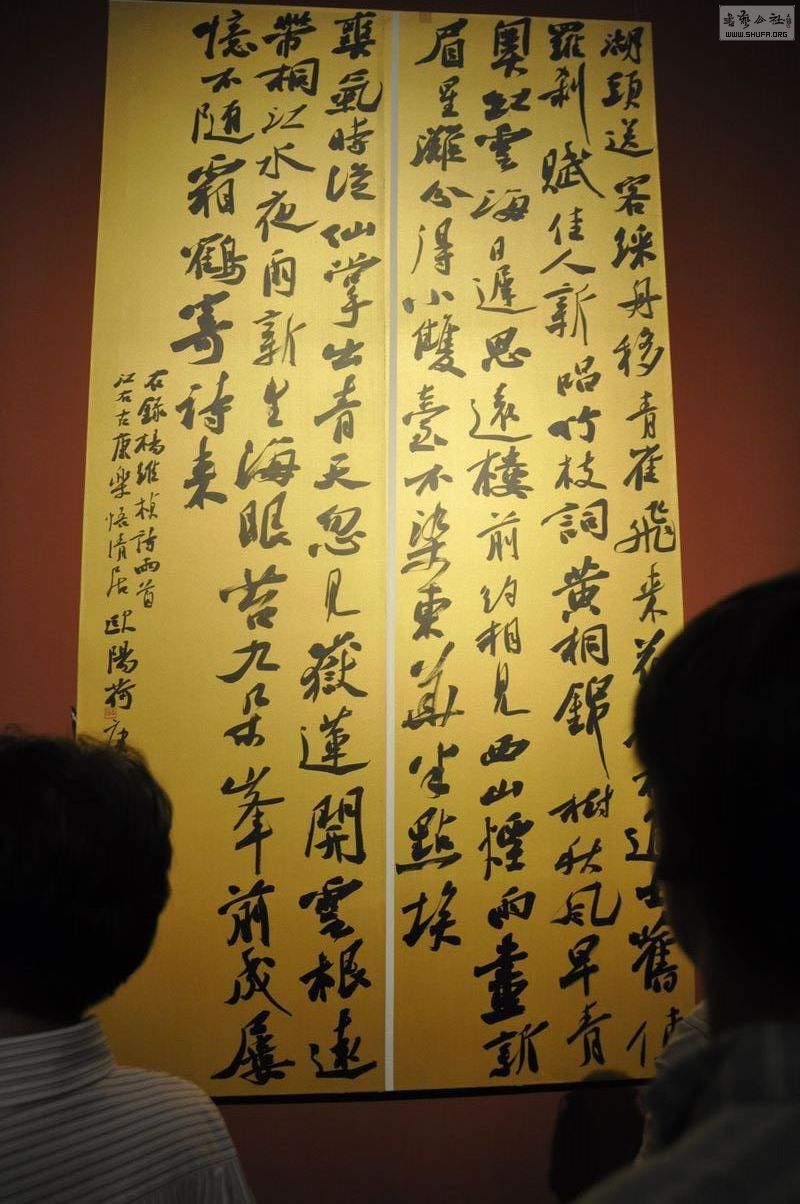 書藝公社
WWW.SHUFA.ORG
湖頭送客綵舟移青雀飛來花 進士舊使
羅剎賦佳人新唱竹枝詞黃桐錦樹秋風早青
奧紅雲海日遲思遠樓前約相見西山煙雨畫新
眉星灘分得小雙臺不染東華半點埃
爽氣時從仙掌出青天忽見嶽蓮開雲根遠
帶桐江水夜雨新生海眼苔九朵峯前成屢
憶不隨霜鶴寄詩來
右錄楊維楨詩兩首
江右古康樂悟清居歐陽荷庚